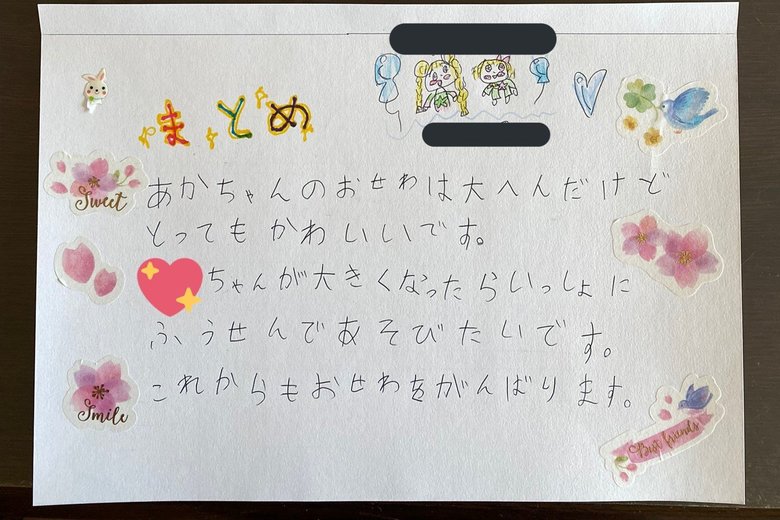 まとめ
Sweet
あかちゃんのおせわは大へんだけど
とってもかわいいです。
ちゃんが大きくなったらいっしょに
ふうせんであそびたいです。
Smile
これからもおせわをがんばります。
Best friends